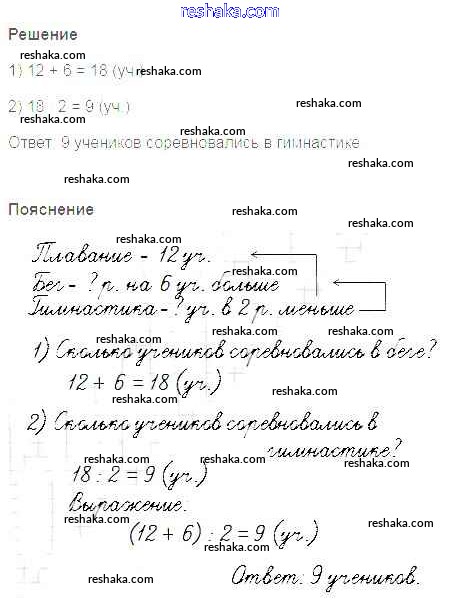 reshaka.com
Решение
reshaka.com
1) 12 + 6 = 18 (уч.)
reshaka.com
2) 18 : 2 = 9 (уч.)
reshaka.com
reshaka.com
reshaka.com
Ответ: 9 учеников соревновались в гимнастике
reshaka.com
reshaka.com
Пояснение
reshaka.com
reshaka.com
reshaka.com
Плавание - 12 уч.
reshaka.com
Бег - ? р. на 6 уч. больше
reshaka.com
Гимнастика - ? уч. в 2 р. меньше
reshaka.com
reshaka.com
1) Сколько учеников соревновались в беге?
reshaka.com
12 + 6 = 18 (уч.)
reshaka.com
reshaka.com
2) Сколько учеников соревновались в
гимнастике?
reshaka.com
reshaka.com
reshaka.com
18 : 2 = 9 (уч.)
reshaka.com
Выражение:
reshaka.com
reshaka.com
(12 + 6) : 2 = 9 (уч.)
reshaka.com
reshaka.com
Ответ: 9 учеников.